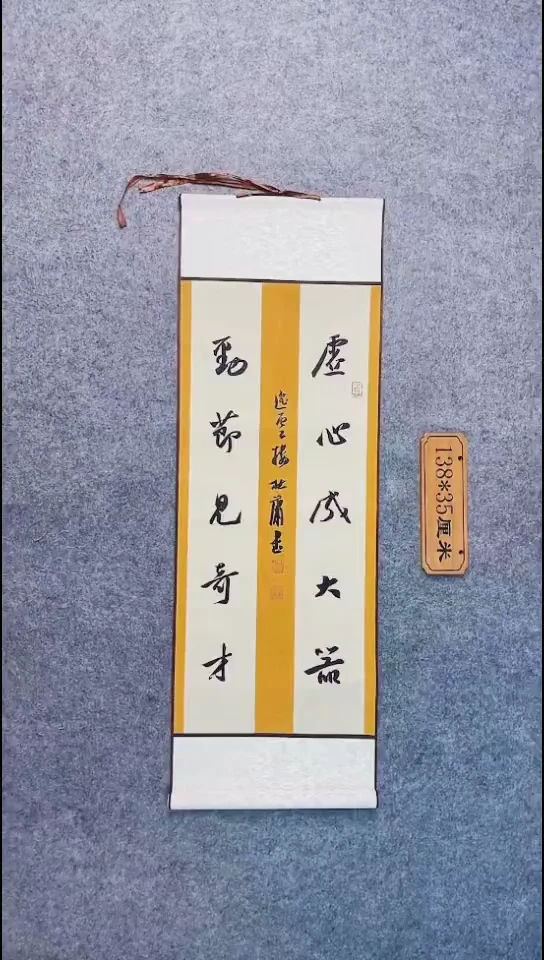 虚心成大器
劲節見奇才
138*35厘米